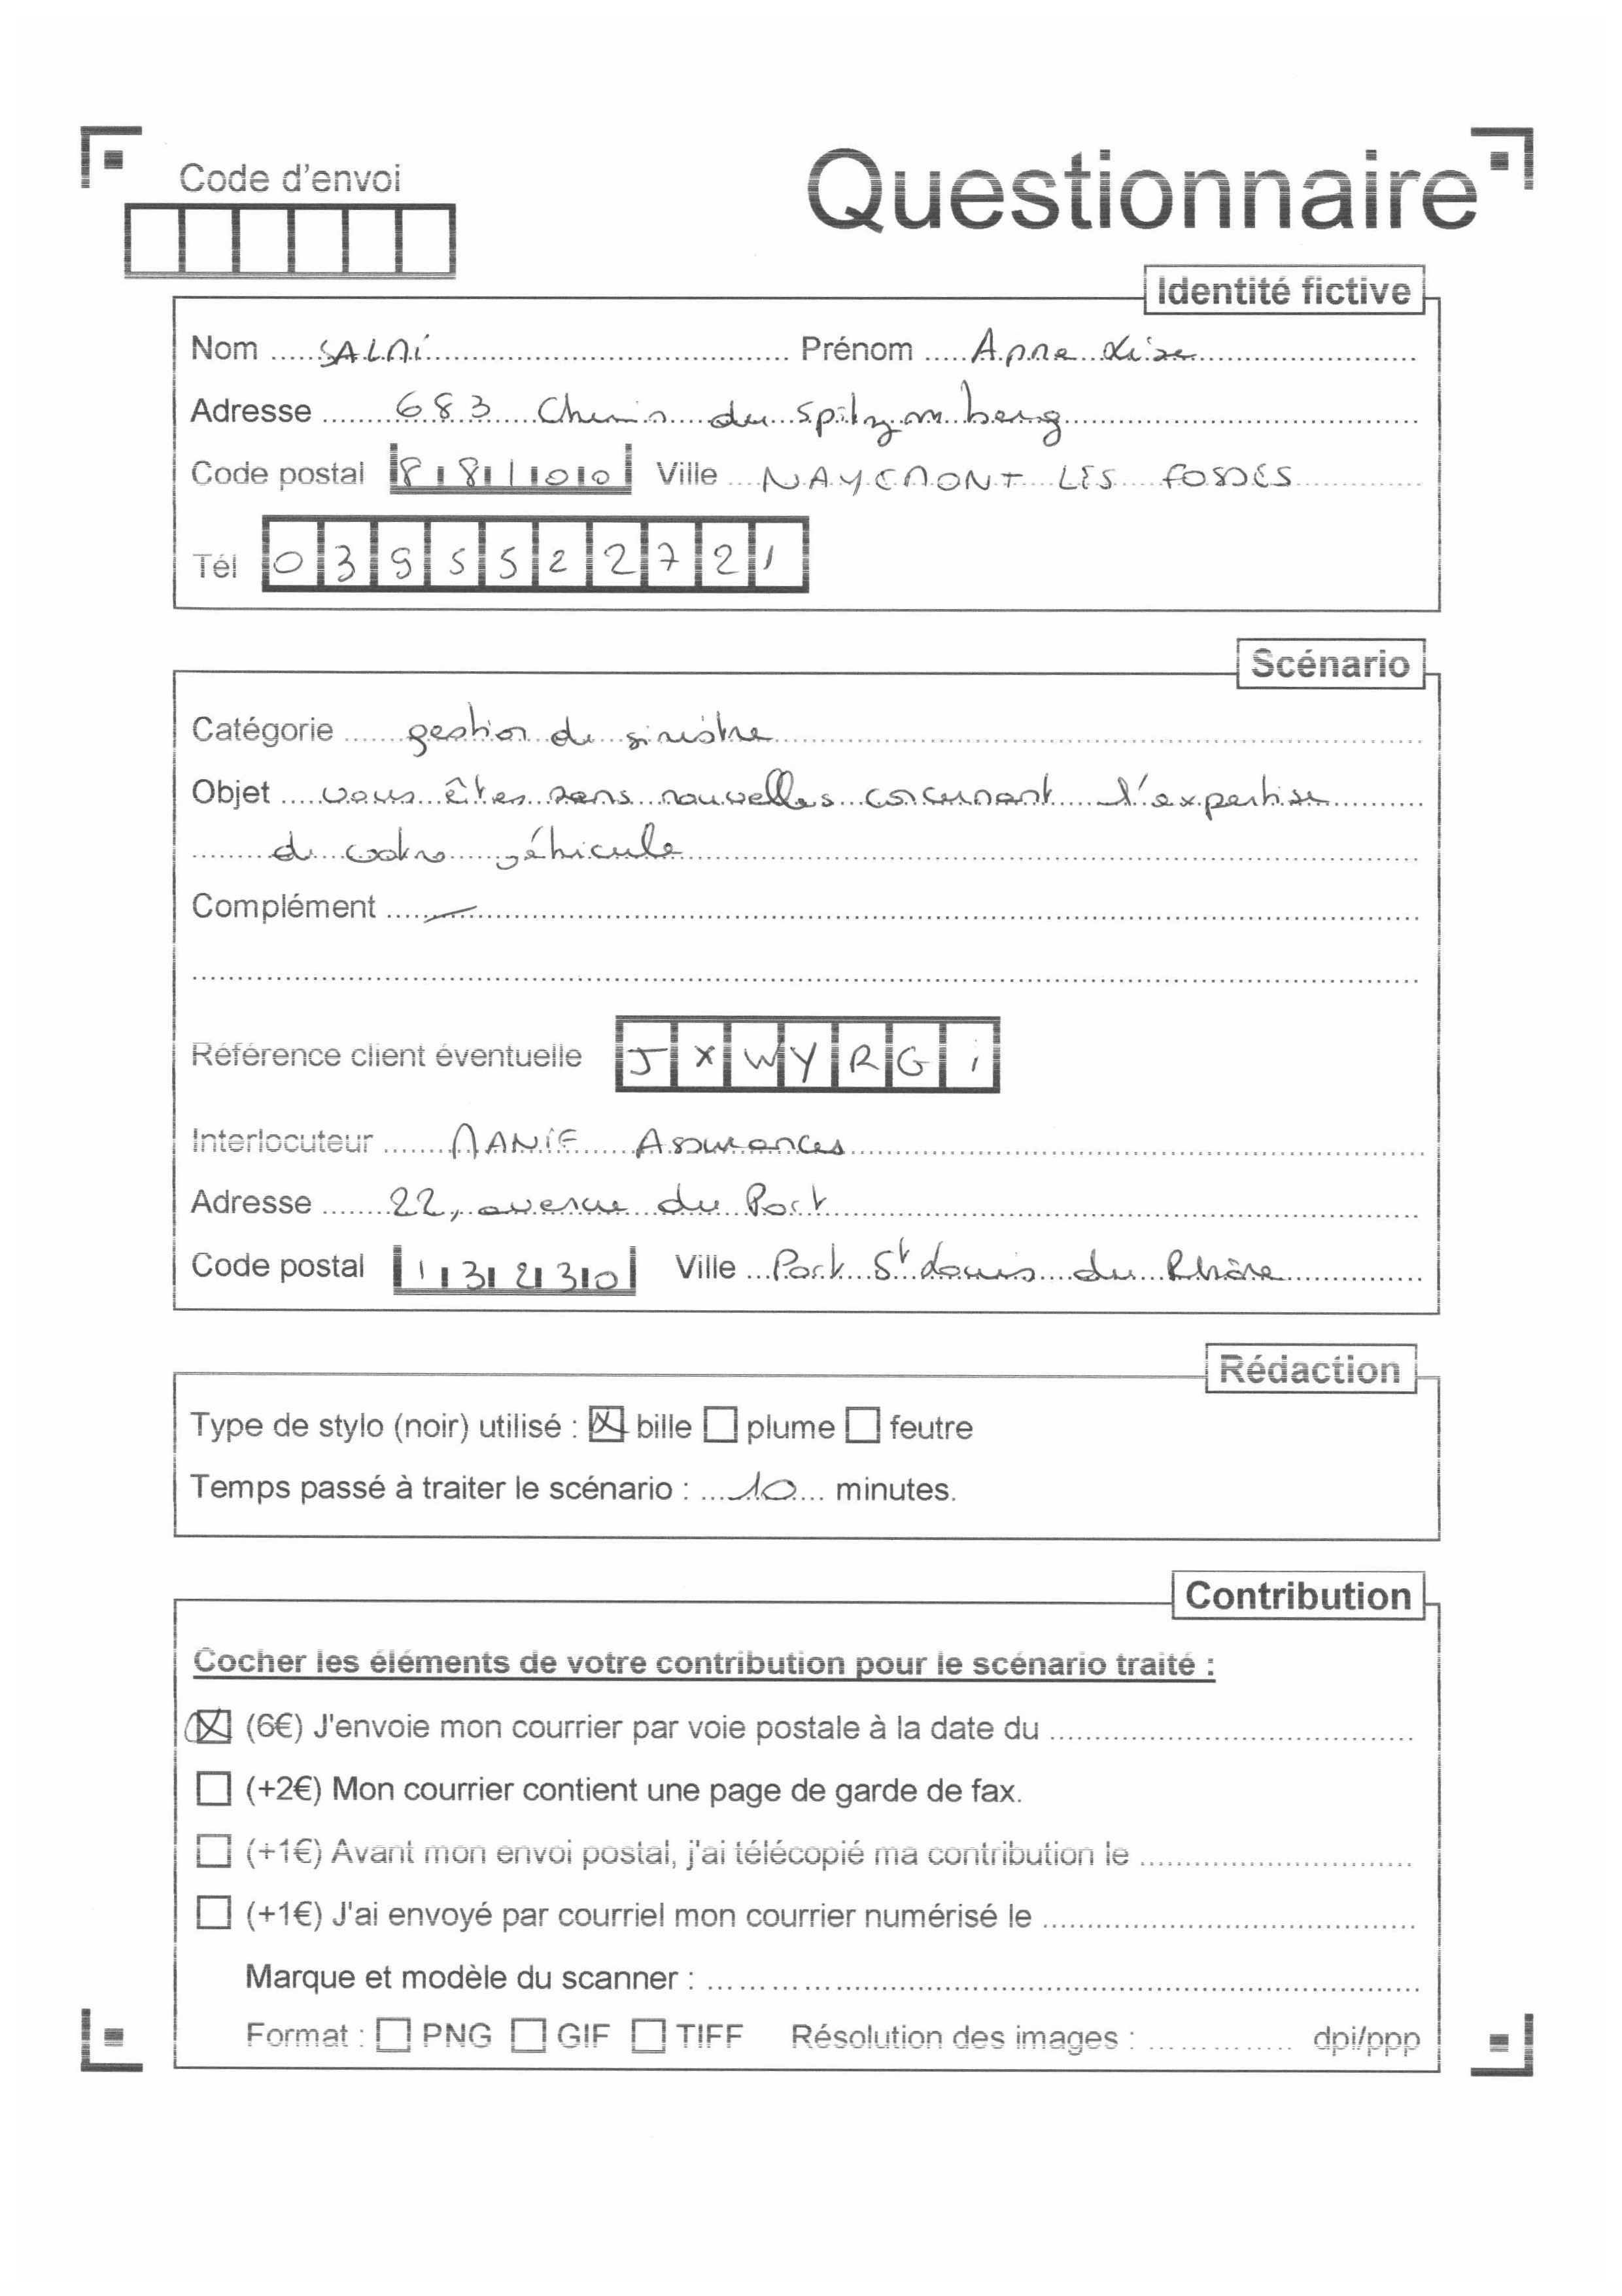 Code d'envoi
Questionnaire
Identité fictive
Nom SALMI Prénom Anne Lise
Adresse 683 Chemin du Spitzemberg
Code postal 88100 Ville NAYEMONT LES FOSSES
Tél 0395522721
Scénario
Catégorie gestion de sinistre
Objet vous êtes sans nouvelles concernant l'expertise
de votre véhicule
Complément —
Référence client éventuelle JXWYRGI
Interlocuteur MANIF Assurances
Adresse 22, avenue du Port
Code postal 13230 Ville Port St Louis du Rhône
Rédaction
Type de stylo (noir) utilisé : bille plume feutre
Temps passé à traiter le scénario : 10 minutes.
Contribution
Cocher les éléments de votre contribution pour le scénario traité :
(6€) J'envoie mon courrier par voie postale à la date du
(+2€) Mon courrier contient une page de garde de fax.
(+1€) Avant mon envoi postal, j'ai télécopié ma contribution le
(+1€) J'ai envoyé par courriel mon courrier numérisé le
Marque et modèle du scanner :
Format : PNG GIF TIFF Résolution des images : dpi/ppp